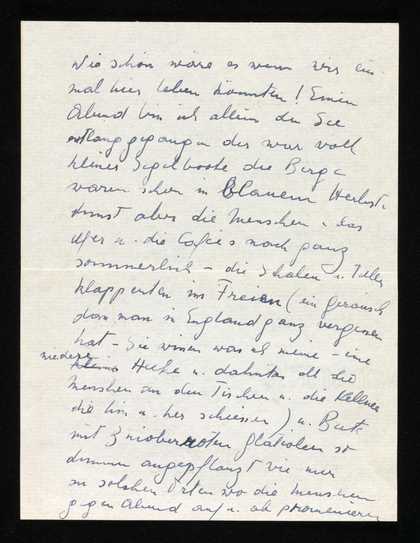 Wie schön wäre es wenn wir ein-
mal hier leben könnten! Einen
Abend bin ich allein den See
entlanggegangen der war voll
kleiner Segelboote die Berge
waren schon in blauem Herbst-
dunst aber die Menschen u. das
Ufer u. die Cafés noch ganz
sommerlich - die Schalen u. Teller
klapperten im Freien (ein Geräusch
dass man in England ganz vergessen
hat - Sie wissen was ich meine - eine
niedere Hecke u. dahinter all die
Menschen an den Tischen u. die Kellner
die hin u. her schiessen) u. Beete
mit zinoberroten Gladiolen so
dumm angepflanzt wie nur
an solchen Orten wo die Menschen
gegen Abend auf u. ab promenieren